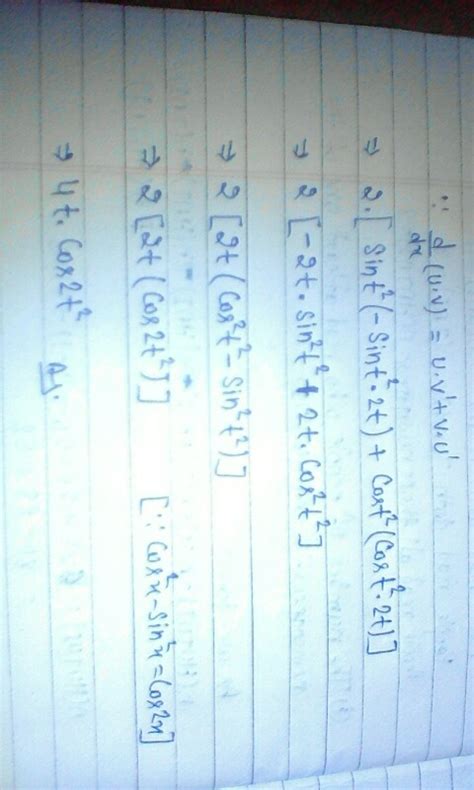 ∵ d/dx (u.v) = u.v' + v.u'
⇒ 2.[ Sint²(-Sint².2t) + Cost²(Cost².2t)]
⇒ 2 [-2t.sin²t² + 2t.Cos²t²]
⇒ 2 [2t(Cos²t² - Sin²t²)]
⇒ 2 [2t(Cos2t²)] [∵ Cos²x - Sin²x = Cos2x]
⇒ 4t.Cos2t²